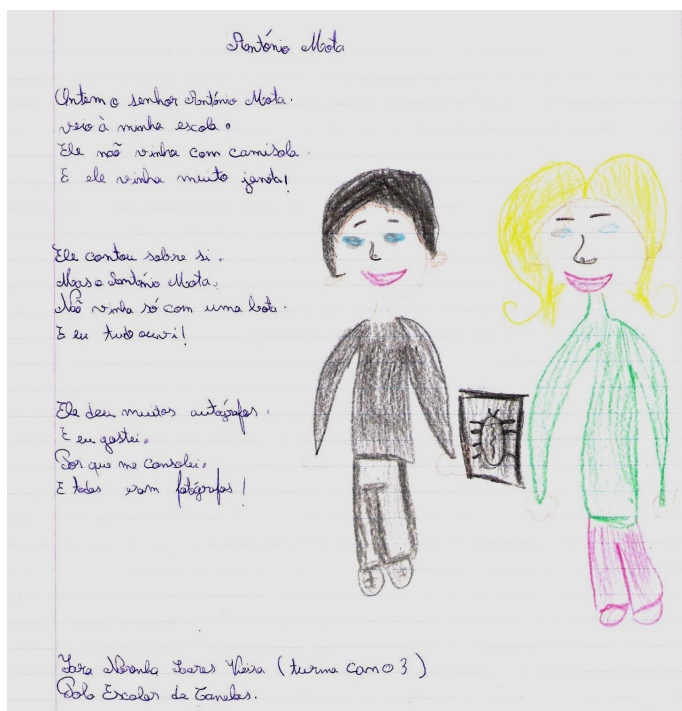 António Mota
Ontem o senhor António Mota.
veio à minha escola.
Ele não vinha com camisola.
E ele vinha muito janota!
Ele contou sobre si.
Mas o António Mota.
Não vinha só com uma bota.
E eu tudo ouvi!
Ele deu muitos autógrafos.
E eu gostei.
Por que me consolei.
E todos eram fotógrafos!
Iara Noronha Vieira (turma can o 3)
Polo Escolar de Canelas.